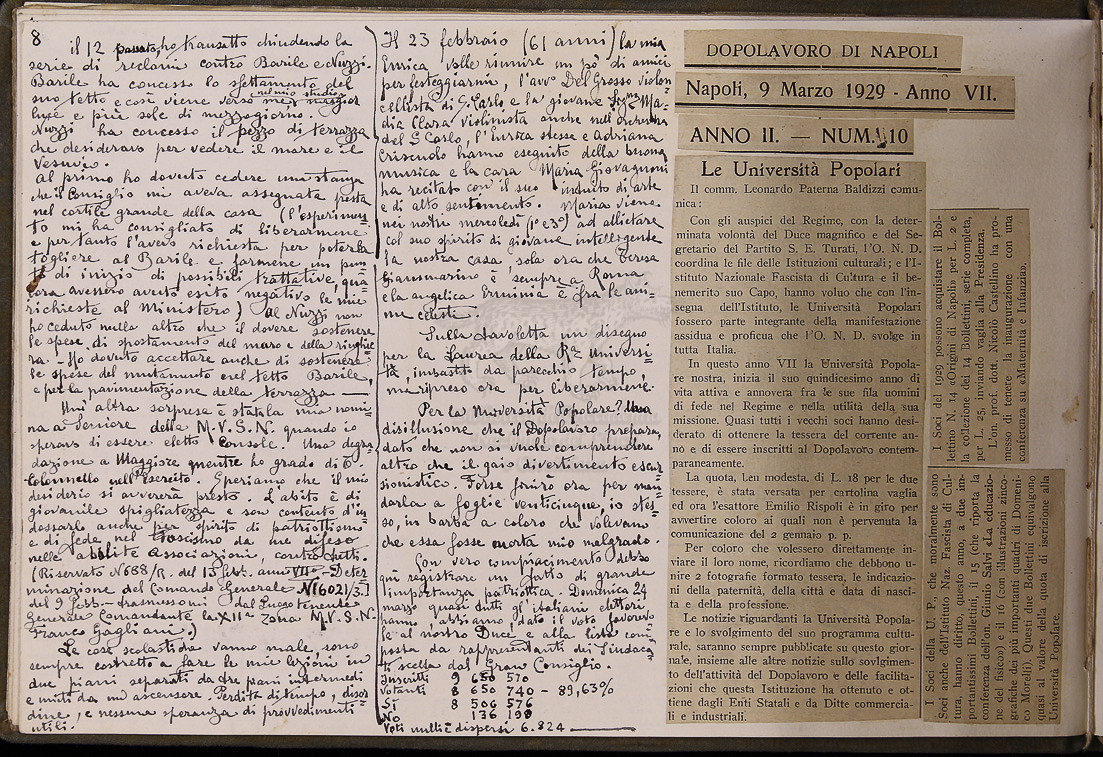 8
il 12 passato, ho transatto chiudendo la
serie di reclami contro Barile e Nuzzi.
Barile ha concesso lo sfettamento del
suo tetto e così viene verso
nel mio studio
luce e più sole di mezzogiorno.
Nuzzi ha concesso il pezzo di terrazza
che desideravo per vedere il mare e il
Vesuvio.
al primo ho dovuto cedere una stanza
che il Consiglio mi aveva assegnata posta
nel cortile grande della casa (l'esperimen=
to mi ha consigliato di liberarmene
e pertanto l'avevo richiesta per poterla
togliere al Barile e farmene un pun=
to di inizio di possibili trattative, qua=
lora avessero avuto esito negativo le mie
richieste al Ministero) al Nuzzi non
ho ceduto nulla altro che il dovere sostenere
le spese di spostamento del muro e della ringhie=
ra. Ho dovuto accettare anche di sostenere
le spese del mutamento nel tetto Barile,
e per la pavimentazione della terrazza —
Un'altra sorpresa è stata la mia nomi=
na a Seniore della M.V.S.N. quando io
speravo di essere eletto Console. Una degra=
dazione a Maggiore mentre ho grado di T.
Colonnello nell'Esercito. Speriamo che il mio
desiderio si avvererà presto. L'abito è di
giovanile spigliatezza e son contento d'in=
dossarlo anche per spirito di patriottismo
e di fede nel Fascismo da me difeso
nelle abolite Associazioni, contro tutti.
(Riservato N 688/R. del 15 febb. anno VII° - Deter
minazione del Comando Generale N 6021/3.I
del 9 febb. trasmessomi dal Luogotenente
Generale Comandante la XIIa Zona M.V.S.N.
Franco Gagliani.)
Le cose scolastiche vanno male, sono
sempre costretto a fare le mie lezioni in
due piani separati da tre piani intermedi
e uniti da un ascensore. Perdita di tempo, disor
dine, e nessuna speranza di provvedimenti
utili.
Il 23 febbraio (61 anni) la mia
Enrica volle riunire un pò di amici
per festeggiarmi, l'avvo Del Grosso violon
cellista di S. Carlo e la giovane Signa Ma=
dia Clara violinista anche nell'orchestra
del S Carlo, l'Enrica stessa e Adriana
Criscuolo hanno eseguito della buona
musica e la cara Maria Giovagnoni
ha recitato con il suo intuito di arte
e di alto sentimento. Maria viene
nei nostri mercoledì (1° e 3°) ad allietare
col suo spirito di giovane intelligente
la nostra casa sola ora che Teresa
Giammarino è sempre a Roma
e la angelica Erminia è fra le ani=
me celesti.
Sulla tavoletta un disegno
per la Laurea della Ra Universi
tà, imbastito da parecchio tempo,
ma ripreso ora per liberarmene.
Per la Università Popolare? Una
disillusione che il Dopolavoro prepara,
dato che non si vuole comprendere
altro che il gaio divertimento escur
sionistico. Forse finirà ora per man=
darla a foglie venticinque, io stes=
so, in barba a coloro che volevano
che essa fosse morta mio malgrado.
Con vero compiacimento debbo
qui registrare un fatto di grande
importanza patriottica. Domenica 24
marzo quasi tutti gl'italiani elettori
hanno, abbiamo dato il voto favorevo
le al nostro Duce e alla lista com=
posta da rappresentanti dei Sindaca=
ti scelta dal Gran Consiglio.
Inscritti 9 650 570
Votanti 8 650 740 - 89,63%
Si 8 506 576
No 136 198
Voti nulli e dispersi 6.824
DOPOLAVORO DI NAPOLI
Napoli, 9 Marzo 1929 - Anno VII.
ANNO II. — NUM. 10
Le Università Popolari
Il comm. Leonardo Paterna Baldizzi comu-
nica:
Con gli auspici del Regime, con la deter-
minata volontà del Duce magnifico e del Se-
gretario del Partito S. E. Turati, l'O. N. D.
coordina le file delle Istituzioni culturali; e l'I-
stituto Nazionale Fascista di Cultura e il be-
nemerito suo Capo, hanno voluo che con l'in-
segna dell'Istituto, le Università Popolari
fossero parte integrante della manifestazione
assidua e proficua che l'O. N. D. svolge in
tutta Italia.
In questo anno VII la Università Popola-
re nostra, inizia il suo quindicesimo anno di
vita attiva e annovera fra le sue fila uomini
di fede nel Regime e nella utilità della sua
missione. Quasi tutti i vecchi soci hanno desi-
derato di ottenere la tessera del corrente an-
no e di essere inscritti al Dopolavoro contem-
paraneamente.
La quota, ben modesta, di L. 18 per le due
tessere, è stata versata per cartolina vaglia
ed ora l'esattore Emilio Rispoli è in giro per
avvertire coloro ai quali non è pervenuta la
comunicazione del 2 gennaio p. p.
Per coloro che volessero direttamente in-
viare il loro nome, ricordiamo che debbono u-
nire 2 fotografie formato tessera, le indicazio-
ni della paternità, della città e data di nasci-
ta e della professione.
Le notizie riguardanti la Università Popola-
re e lo svolgimento del suo programma cultu-
rale, saranno sempre pubblicate su questo gior-
nale, insieme alle altre notizie sullo sovlgimen-
to dell'attività del Dopolavoro e delle facilita-
zioni che questa Istituzione ha ottenuto e ot-
tiene dagli Enti Statali e da Ditte commercia-
li e industriali.
I Soci della U. P., che moralmente sono
Soci anche dell'Istituto Naz. Fascista di Cul-
tura, hanno diritto, questo anno, a due im-
portantissimi Bollettini, il 15 (che riporta la
conferenza dell'on. Giunio Salvi «La educazio-
ne del fisico») e il 16 (con illustrazioni zinco-
grafiche dei più importanti quadri di Domeni-
co Morelli). Questi due Bollettini equivalgono
quasi al valore della quota di iscrizione alla
Università Popolare.
I Soci del 1929 possono acquistare il Bol-
lettino N. 14 «Origini di Napoli» per L. 2 e
la collezione dei 14 Bollettini, serie completa,
per L. 25, inviando vaglia alla Presidenza.
L'om. prof. dott. Nicolò Castellino ha pro-
messo di tenere la inaugurazione con una
conferenza su «Maternità e Infanzia».